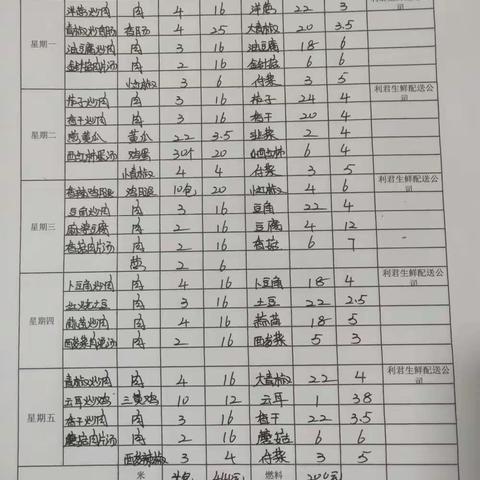 洋葱炒肉 肉 4 16 洋葱 22 3
星期一 青椒炒香肠 香肠 4 25 大青椒 20 3.5
油豆腐炒肉 肉 3 16 油豆腐 18 6
金针菇肉片汤 肉 2 16 金针菇 6 6
小红椒 3 6 什菜 3 5
利君生鲜配送公司
茄子炒肉 肉 3 16 茄子 24 4
香干炒肉 肉 3 16 香干 20 4
星期二 黄瓜 2.2 3.5 韭菜 2 4
西红柿蛋汤 鸡蛋 30个 20 西红柿 6 4
小青椒 4 4 什菜 3 5
利君生鲜配送公司
鸡腿 10包 20 小红椒 4 6
豆角炒肉 肉 3 16 豆角 22 4
星期三 麻婆豆腐 肉 2 16 豆腐 4 12
香菇肉片汤 肉 2 16 香菇 6 7
葱 2 6
利君生鲜配送公司
卜豆角炒肉 肉 4 16 卜豆角 18 4
红烧土豆 肉 3 16 土豆 22 2.5
星期四 蒜苗炒肉 肉 4 16 蒜苗 18 5
肉 2 16 5 3
利君生鲜配送公司
青椒炒肉 肉 4 16 大青椒 22 4
云耳炒鸡 三黄鸡 10 12 云耳 1 38
星期五 香干炒肉 肉 3 16 香干 22 3.5
蘑菇肉片汤 肉 2 16 蘑菇 6 6
3 4 什菜 3 5
米 燃料